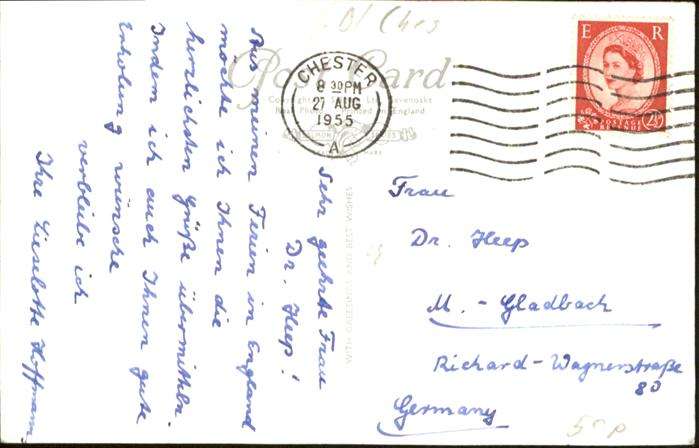 Bl Ches
Post Card
CHESTER
8 30 PM
27 AUG
1955
A
E R
2½
WITH GREETINGS AND BEST WISHES
Sehr geehrte Frau
Dr. Heep!
Aus meinen Ferien in England
möchte ich Ihnen die
herzlichsten Grüße übermitteln.
Indem ich auch Ihnen gute
Erholung wünsche
verbleibe ich
Ihre Lieselotte Hoffmann
Frau
Dr. Heep
M. - Gladbach
Richard - Wagnerstraße
80
Germany
50 p